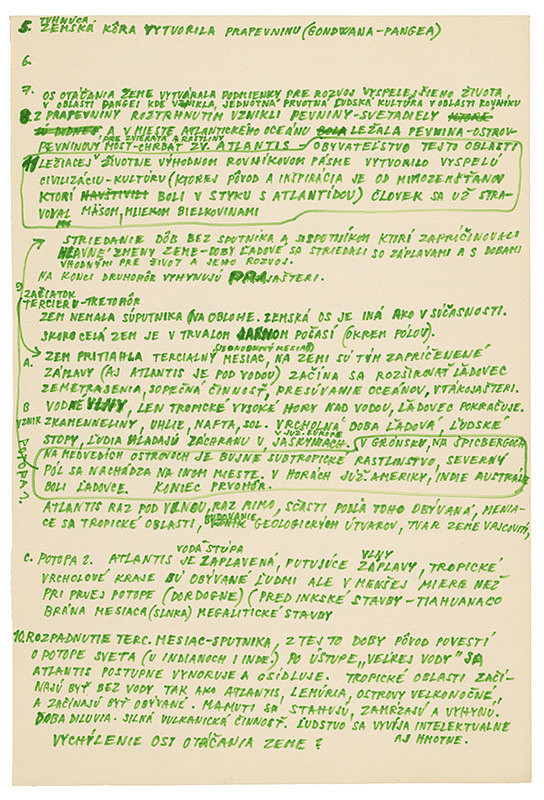 5. TUHNÚCA
ZEMSKÁ KÔRA VYTVORILA PRAPEVNINU (GONDWANA-PANGEA)
6.
7. OS OTÁČANIA ZEME VYTVÁRALA PODMIENKY PRE ROZVOJ VYSPELEJŠIEHO ŽIVOTA
V OBLASTI PANGEI KDE VZNIKLA, JEDNOTNÁ PRVOTNÁ ĽUDSKÁ KULTÚRA V OBLASTI ROVNÍKU
8. Z PRAPEVNINY ROZTRHNUTÍM VZNIKLI PEVNINY-SVETADIELY
A V MIESTE ATLANTICKÉHO OCEÁNU LEŽALA PEVNINA-OSTROV-
PRE ZVIERATÁ A RASTLINY
PEVNINOVÝ MOST-CHRBÁT ZV. ATLANTIS - OBYVATEĽSTVO TEJTO OBLASTI
11 LEŽIACEJ V ŽIVOTNE VÝHODNOM ROVNÍKOVOM PÁSME VYTVORILO VYSPELÚ
CIVILIZÁCIU-KULTÚRU (KTOREJ PÔVOD A INŠPIRÁCIA JE OD MIMOZEMŠŤANOV
KTORÍ NAVŠTÍVILI BOLI V STYKU S ATLANTÍDOU) ČLOVEK SA UŽ STRA-
VOVAL MÄSOM, MLIEKOM BIELKOVINAMI
STRIEDANIE DÔB BEZ SPUTNIKA A SO SPUTNÍKOM KTORÍ ZAPRÍČIŇOVALI
HLAVNÉ ZMENY ZEME-DOBY ĽADOVÉ SA STRIEDALI SO ZÁPLAVAMI A S DOBAMI
VHODNÝMI PRE ŽIVOT A JEHO ROZVOJ.
NA KONCI DRUHOHÔR VYHYNULI PRAJAŠTERI.
9 ZAČIATOK
TERCIERU-TRETOHÔR
ZEM NEMALA SÚPUTNIKA (NA OBLOHE. ZEMSKÁ OS JE INÁ AKO V SÚČASNOSTI.
SKORO CELÁ ZEM JE V TRVALOM JARNOM POČASÍ (OKREM POLOV).
A. ZEM PRITIAHLA TERCIALNÝ MESIAC, NA ZEMI SÚ TÝM ZAPRÍČENENÉ
ZÁPLAVY (AJ ATLANTIS JE POD VODOU) ZAČÍNA SA ROZŠIROVAŤ ĽADOVEC
ZEMETRASENIA, SOPEČNÁ ČINNOSŤ, PRESÚVANIE OCEÁNOV, VTÁKOJAŠTERI.
B VODNÉ VLNY, LEN TROPICKÉ VYSOKÉ HORY NAD VODOU, ĽADOVEC POKRAČUJE.
VZNIK ZKAMENNELINY, UHLIE, NAFTA, SOL. VRCHOLNÁ DOBA ĽADOVÁ, ĽUDSKÉ
V JUŽ. EUROPE
STOPY, ĽUDIA HĽADAJÚ ZÁCHRANU V JASKYNIACH. V GRÓNSKU, NA ŠPICBERGOCH
POTOPA 1.
NA MEDVEDÍCH OSTROVOCH JE BUJNÉ SUBTROPICKÉ RASTLINSTVO, SEVERNÝ
PÓL SA NACHÁDZA NA INOM MIESTE. V HORÁCH JUŽ. AMERIKY, INDIE AUSTRÁLIE
BOLI ĽADOVCE. KONIEC PRVOHÔR.
ATLANTIS RAZ POD VLNOU, RAZ MIMO, SČASTI PODĽA TOHO OBÝVANÁ, MENIA-
CE SA TROPICKÉ OBLASTI, BUDOVANIE GEOLOGICKÝCH ÚTVAROV, TVAR ZEME VAJCOVITÝ,
VODA STÚPA VLNY
C. POTOPA 2. ATLANTIS JE ZAPLAVENÁ, PUTUJÚCE ZÁPLAVY, TROPICKÉ
VRCHOLOVÉ KRAJE SÚ OBÝVANÉ ĽUĎMI ALE V MENŠEJ MIERE NEŽ
PRI PRVEJ POTOPE (DORDOGNE) (PRED INKSKÉ STAVBY-TIAHUANACO
BRÁNA MESIACA (SLNKA) MEGALITICKÉ STAVBY
10. ROZPADNUTIE TERC. MESIAC-SPUTNIKA, Z TEJTO DOBY PÔVOD POVESTÍ
O POTOPE SVETA (U INDIÁNOCH I INDE) PO ÚSTUPE "VEĽKEJ VODY" SA
ATLANTIS POSTUPNE VYNORUJE A OSÍDĽUJE. TROPICKÉ OBLASTI ZAČÍ-
NAJÚ BYŤ BEZ VODY TAK AKO ATLANTIS, LEMÚRIA, OSTROVY VEĽKONOČNÉ
A ZAČÍNAJÚ BYŤ OBÝVANÉ. MAMUTI SA STAHUJÚ, ZAMŔZAJÚ A VYHYNÚ.
DOBA DILUVIA. SILNÁ VULKANICKÁ ČINNOSŤ. ĽUDSTVO SA VYVÍJA INTELEKTUALNE
AJ HMOTNE.
VYCHÝLENIE OSI OTÁČANIA ZEME?